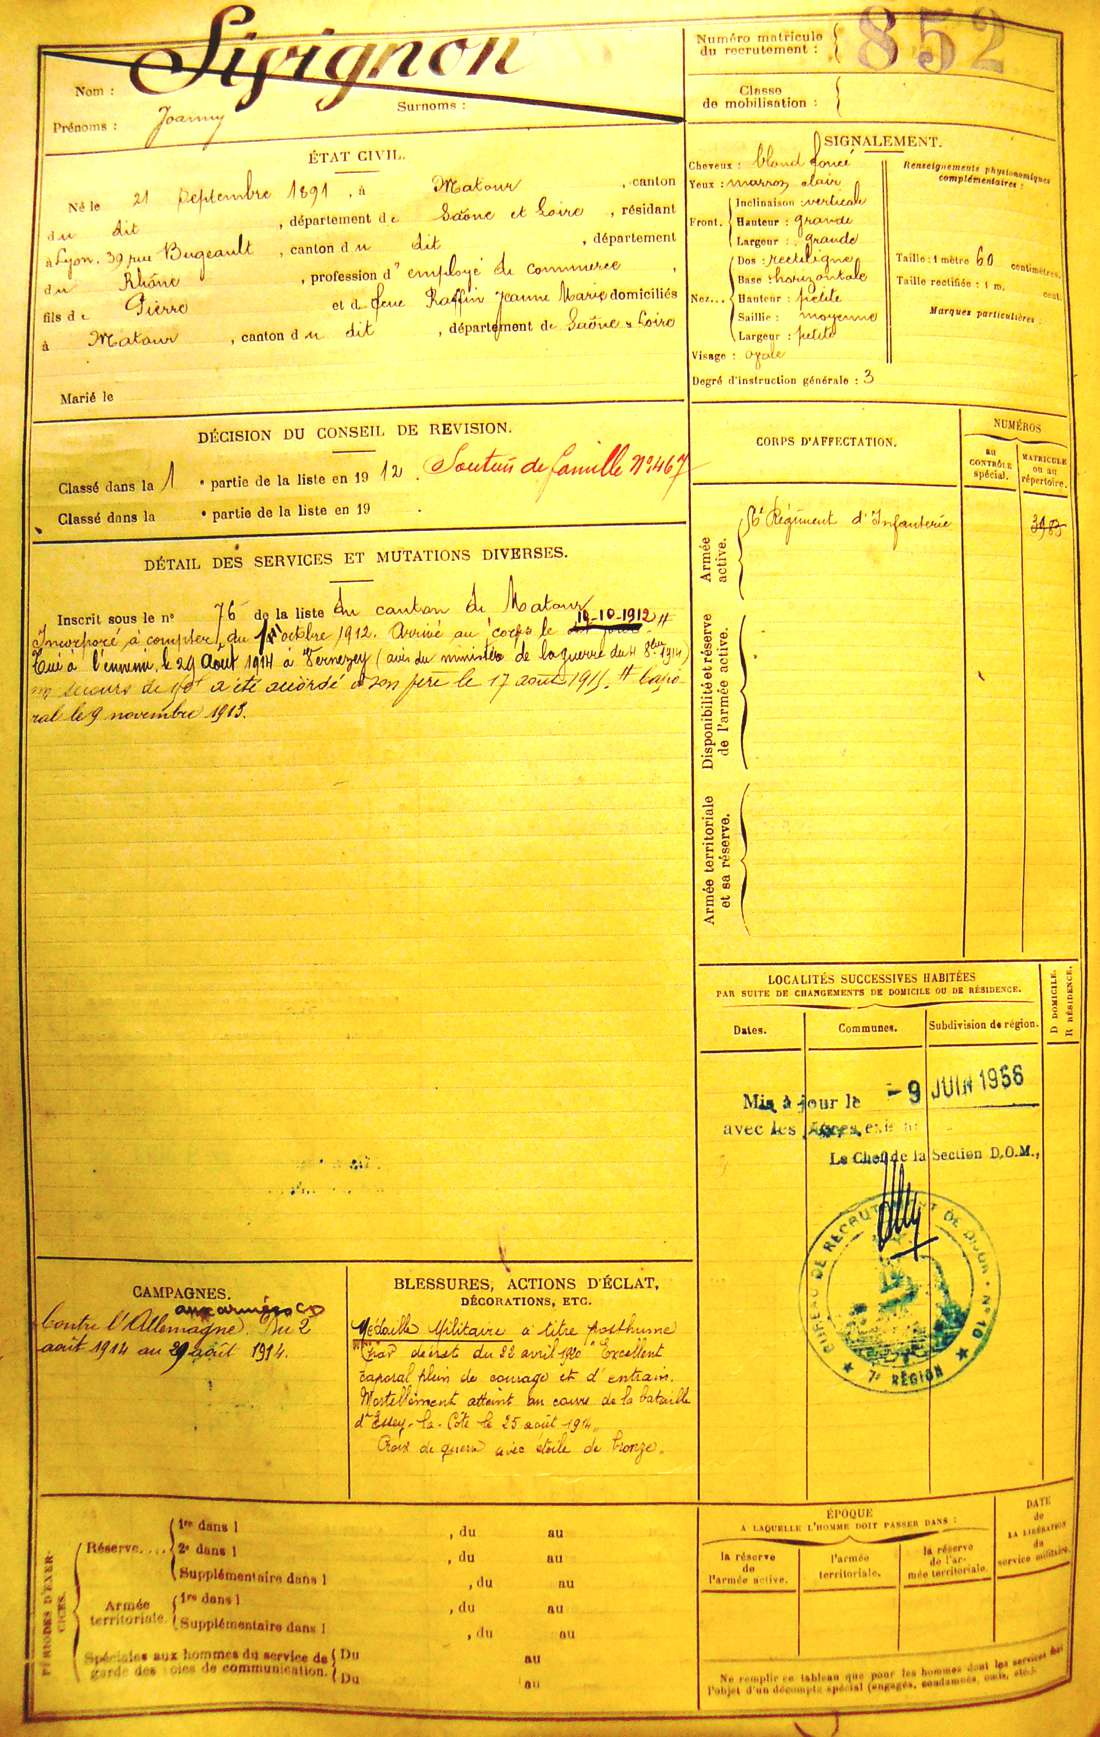 Nom : Sivignon
Prénoms : Joanny Surnoms :
Numéro matricule du recrutement : 852
Classe de mobilisation :
ÉTAT CIVIL.
Né le 21 Septembre 1891, à Matour, canton
du dit, département de Saône et Loire, résidant
à Lyon, 39 rue Bugeault, canton du dit, département
du Rhône, profession d'employé de commerce,
fils de Pierre et de feue Raffin Jeanne Marie domiciliés
à Matour, canton du dit, département de Saône & Loire
Marié le
SIGNALEMENT.
Cheveux : blond foncé
Yeux : marron clair
Front. Inclinaison : verticale
Hauteur : grande
Largeur : grande
Nez... Dos : rectiligne
Base : horizontale
Hauteur : petite
Saillie : moyenne
Largeur : petite
Visage : ovale
Degré d'instruction générale : 3
Renseignements physionomiques complémentaires :
Taille : 1 mètre 60 centimètres.
Taille rectifiée : 1 m. cent.
Marques particulières :
DÉCISION DU CONSEIL DE REVISION.
Classé dans la 1 e partie de la liste en 1912. Soutien de famille N° 467
Classé dans la e partie de la liste en 19 .
DÉTAIL DES SERVICES ET MUTATIONS DIVERSES.
Inscrit sous le n° 76 de la liste du canton de Matour
Incorporé à compter du octobre 1912. Arrivé au corps le 10-10-1912 #
Tué à l'ennemi, le 29 Août 1914 à (avis du ministère de la guerre du 4 8bre 1914)
un secours de a été accordé à son père le 17 août 1915. # Capo-
ral le 9 novembre 1913.
CORPS D'AFFECTATION.
NUMÉROS
au CONTRÔLE spécial.
MATRICULE ou au répertoire.
Armée active.
56e Régiment d'Infanterie 3983
Disponibilité et réserve de l'armée active.
Armée territoriale et sa réserve.
LOCALITÉS SUCCESSIVES HABITÉES
PAR SUITE DE CHANGEMENTS DE DOMICILE OU DE RÉSIDENCE.
Dates. Communes. Subdivision de région.
D DOMICILE.
R RÉSIDENCE.
Mis à jour le - 9 JUIN 1956
avec les
Le Chef de la Section D.O.M.,
BUREAU DE RECRUTEMENT DE DIJON - N° 10
★ 7e RÉGION ★
CAMPAGNES.
aux armées CD
Contre l'Allemagne. Du 2
août 1914 au 29 août 1914.
BLESSURES, ACTIONS D'ÉCLAT,
DÉCORATIONS, ETC.
Médaille Militaire à titre posthume
par décret du 22 avril 1920 "Excellent
caporal plein de courage et d'entrain.
Mortellement atteint au cours de la bataille
d'Essey-la-Côte le 25 août 1914"
Croix de guerre avec étoile de bronze.
PÉRIODES D'EXERCICES.
Réserve.... 1re dans l , du au
2e dans l , du au
Supplémentaire dans l , du au
Armée territoriale. 1re dans l , du au
Supplémentaire dans l , du au
Spéciales aux hommes du service de garde des voies de communication. Du au
Du au
ÉPOQUE
A LAQUELLE L'HOMME DOIT PASSER DANS :
la réserve de l'armée active.
l'armée territoriale.
la réserve de l'armée territoriale.
DATE de LA LIBÉRATION du service militaire.
Ne remplir ce tableau que pour les hommes dont les services font
l'objet d'un décompte spécial (engagés, condamnés, omis, etc.).